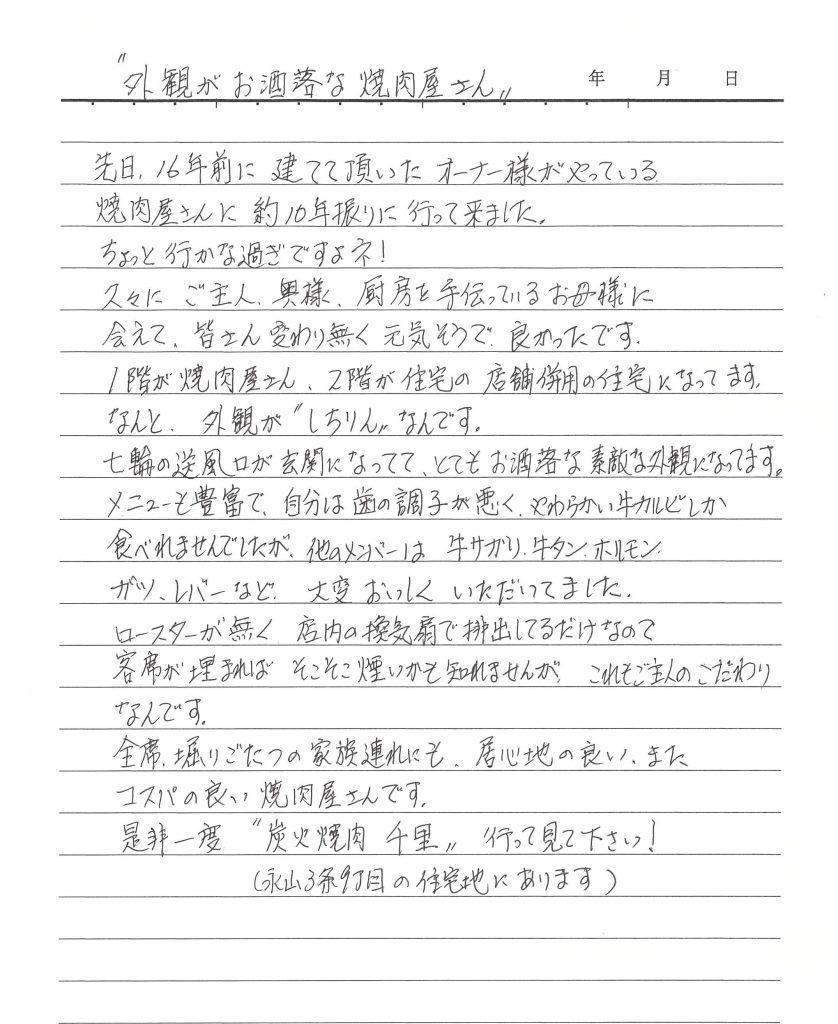 〝外観がお洒落な焼肉屋さん〟 年 月 日
先日、16年前に建てて頂いたオーナー様がやっている
焼肉屋さんに約10年振りに行って来ました。
ちょっと行かな過ぎですよネ!
久々にご主人、奥様、厨房を手伝っているお母様に
会えて、皆さん変わり無く元気そうで、良かったです。
1階が焼肉屋さん、2階が住宅の店舗併用の住宅になってます。
なんと、外観が〝しちりん〟なんです。
七輪の送風口が玄関になってて、とてもお洒落な素敵な外観になってます。
メニューも豊富で、自分は歯の調子が悪く、やわらかい牛カルビしか
食べれませんでしたが、他のメンバーは牛サガリ、牛タン、ホルモン、
ガツ、レバーなど、大変おいしくいただいてました。
ロースターが無く店内の換気扇で排出してるだけなので
客席が埋まればそこそこ煙いかも知れませんが、これもご主人のこだわり
なんです。
全席、堀りごたつの家族連れにも、居心地の良い、また
コスパの良い焼肉屋さんです。
是非一度〝炭火焼肉 千里〟行って見て下さい!
(永山3条9丁目の住宅地にあります)